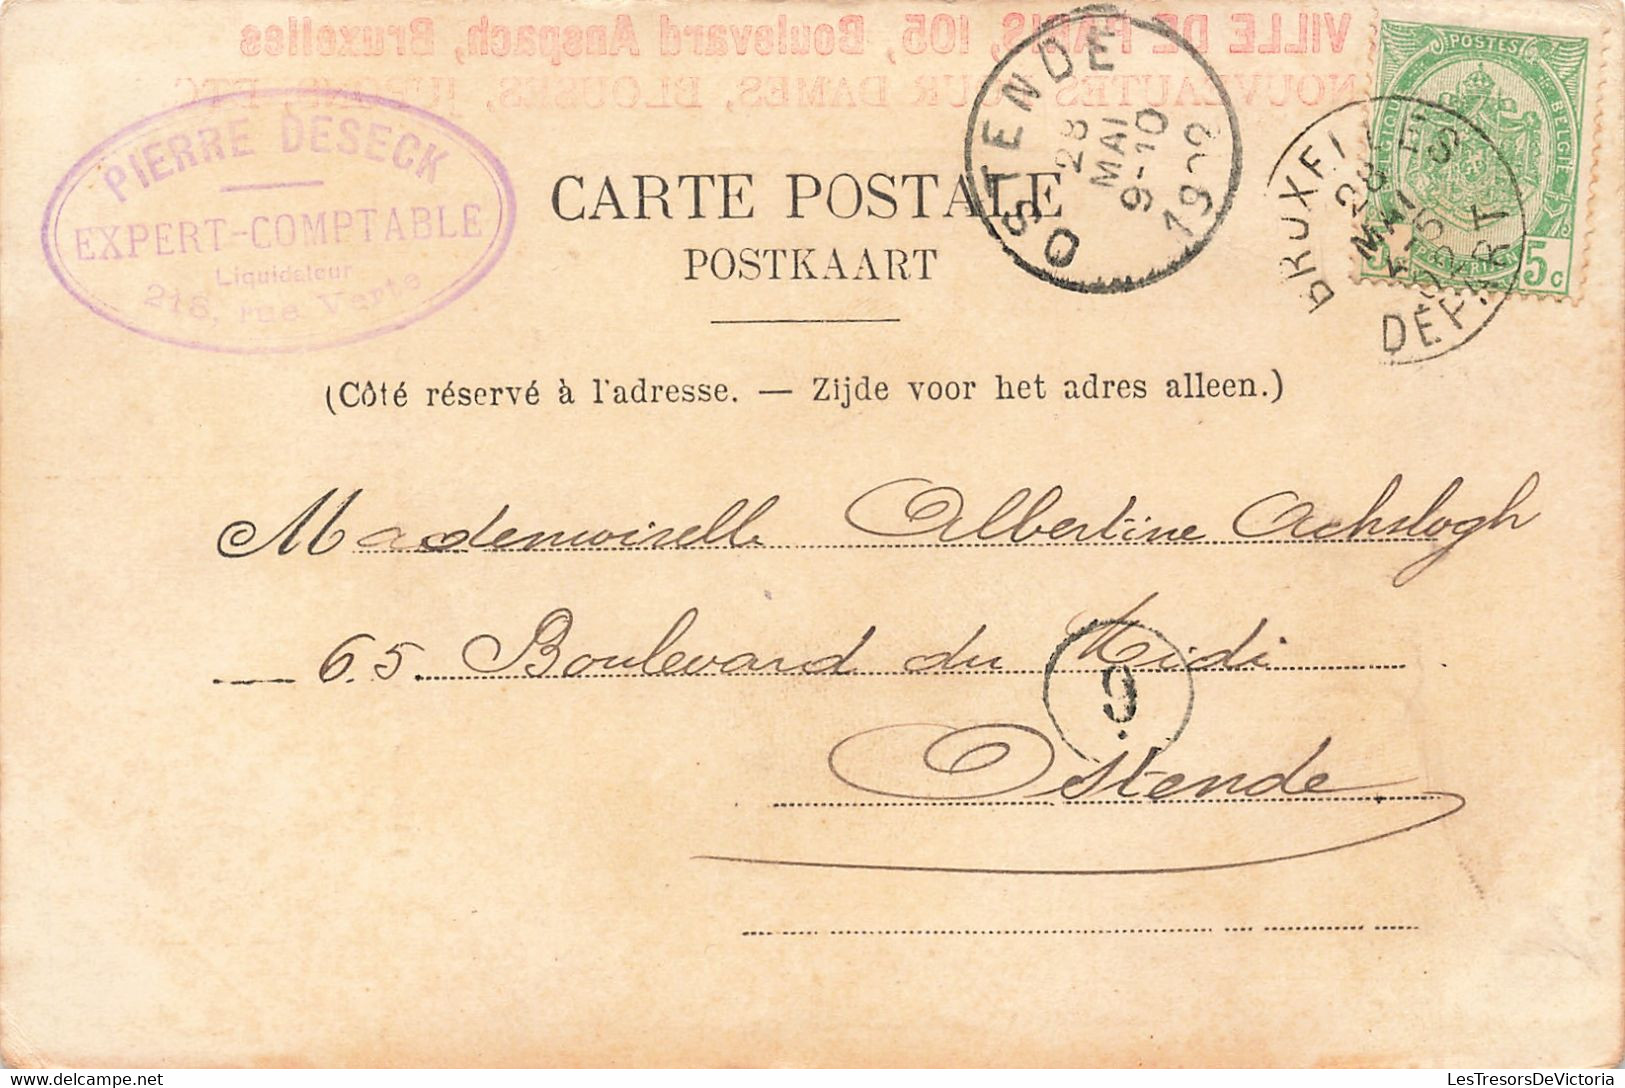 VILLE DE PARIS, 105, Boulevard Anspach, Bruxelles
NOUVEAUTES POUR DAMES, BLOUSES, JUPONS, ETC
PIERRE DESECK
EXPERT-COMPTABLE
Liquidateur
218, rue Verte
OSTENDE
28
MAI
9-10
1902
POSTES
BELGIQUE
BELGIE
5c
28
MAI
DÉPART
CARTE POSTALE
POSTKAART
(Côté réservé à l'adresse. — Zijde voor het adres alleen.)
Mademoiselle Albertine Achslogh
65. Boulevard du Midi
9
Ostende.
LesTresorsDeVictoria